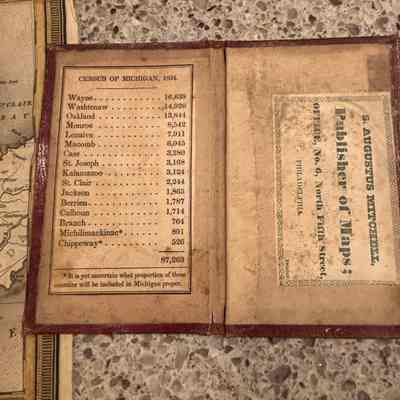 CENSUS OF MICHIGAN, 1834.
Wayne 16,638
Washtenaw 14,920
Oakland 13,844
Monroe 8,542
Lenaive 7,911
Macomb 6,045
Cass 3,280
St. Joseph 3,168
Kalamazoo 3,124
St. Clair 2,244
Jackson 1,865
Berrien 1,787
Calhoun 1,714
Branch 764
Michilimackinac* 891
Chippeway* 526
87,263
* It is yet uncertain what proportion of these
counties will be included in Michigan proper.
S. AUGUSTUS MITCHELL,
Publisher of Maps;
OFFICE, No. 6, North Fifth Street,
PHILADELPHIA.